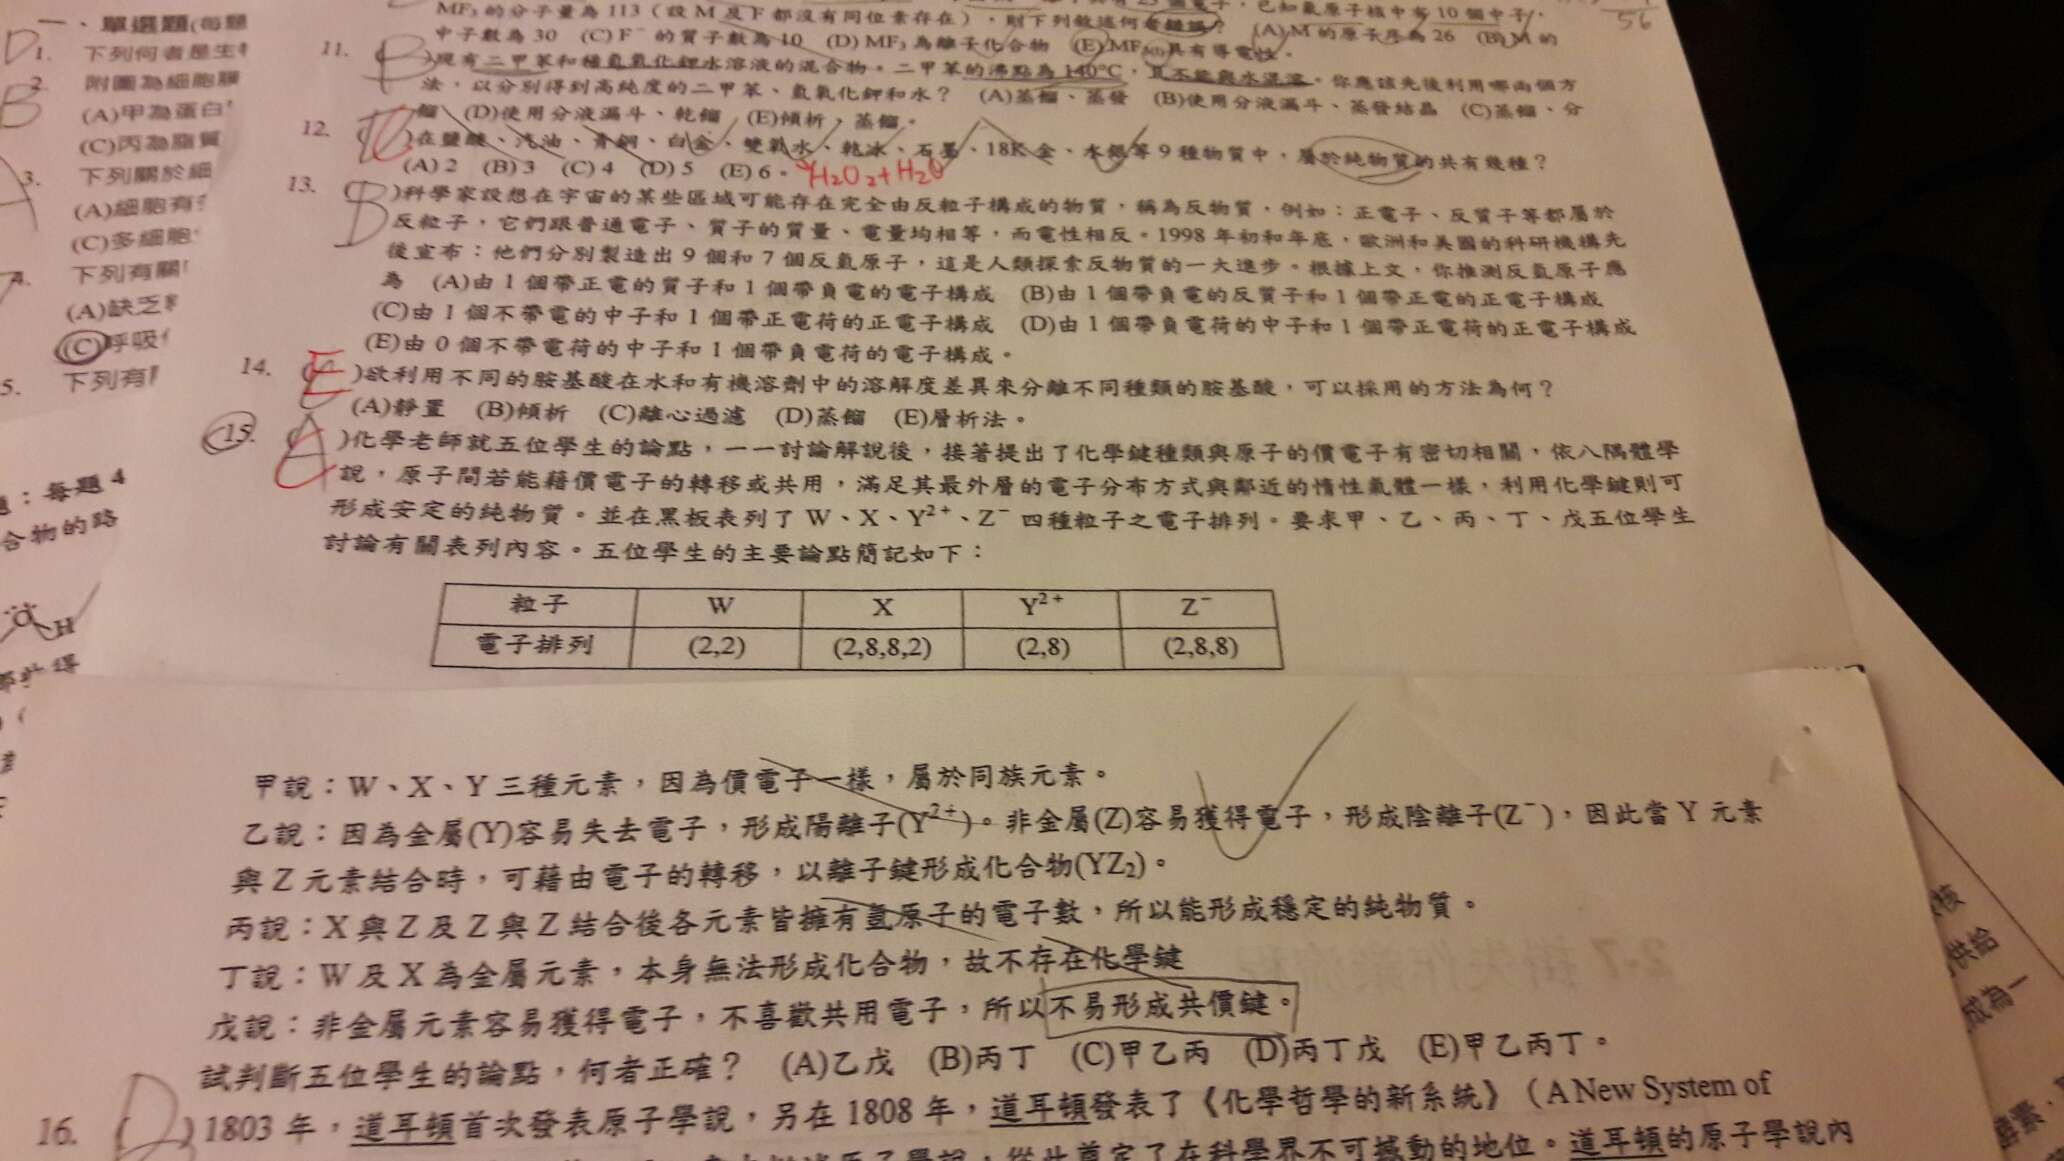 一、單選題(每題
1. 下列何者是生
2. 附圖為細胞膜
(A)甲為蛋白
(C)丙為脂質
3. 下列關於細
(A)細胞有
(C)多細胞
4. 下列有關
(A)缺乏
(C)呼吸
5. 下列有
：每題 4
合物的路
MF₃ 的分子量為 113（設 M 及 F 都沒有同位素存在），則下列敘述何者錯誤？ (A) M 的原子序為 26 (B) M 的
中子數為 30 (C) F⁻ 的質子數為 10 (D) MF₃ 為離子化合物 (E) MF₃ 具有導電性。
56
11. (B)現有二甲苯和稀氫氧化鉀水溶液的混合物。二甲苯的沸點為 140°C，且不能與水混溶。你應該先後利用哪兩個方
法，以分別得到高純度的二甲苯、氫氧化鉀和水？ (A)蒸餾、蒸發 (B)使用分液漏斗、蒸發結晶 (C)蒸餾、分
餾 (D)使用分液漏斗、乾餾 (E)傾析，蒸餾。
12. ( )在鹽酸、汽油、青銅、白金、雙氧水、乾冰、石墨、18K 金、水銀等 9 種物質中，屬於純物質的共有幾種？
(A) 2 (B) 3 (C) 4 (D) 5 (E) 6。 H₂O₂+H₂O
13. (B)科學家設想在宇宙的某些區域可能存在完全由反粒子構成的物質，稱為反物質，例如：正電子、反質子等都屬於
反粒子，它們跟普通電子、質子的質量、電量均相等，而電性相反。1998 年初和年底，歐洲和美國的科研機構先
後宣布：他們分別製造出 9 個和 7 個反氫原子，這是人類探索反物質的一大進步。根據上文，你推測反氫原子應
為 (A)由 1 個帶正電的質子和 1 個帶負電的電子構成 (B)由 1 個帶負電的反質子和 1 個帶正電的正電子構成
(C)由 1 個不帶電的中子和 1 個帶正電荷的正電子構成 (D)由 1 個帶負電荷的中子和 1 個帶正電荷的正電子構成
(E)由 0 個不帶電荷的中子和 1 個帶負電荷的電子構成。
14. (E)欲利用不同的胺基酸在水和有機溶劑中的溶解度差異來分離不同種類的胺基酸，可以採用的方法為何？
(A)靜置 (B)傾析 (C)離心過濾 (D)蒸餾 (E)層析法。
15. ( )化學老師就五位學生的論點，一一討論解說後，接著提出了化學鍵種類與原子的價電子有密切相關，依八隅體學
說，原子間若能藉價電子的轉移或共用，滿足其最外層的電子分布方式與鄰近的惰性氣體一樣，利用化學鍵則可
形成安定的純物質。並在黑板表列了 W、X、Y²⁺、Z⁻ 四種粒子之電子排列。要求甲、乙、丙、丁、戊五位學生
討論有關表列內容。五位學生的主要論點簡記如下：
粒子 W X Y²⁺ Z⁻
電子排列 (2,2) (2,8,8,2) (2,8) (2,8,8)
甲說：W、X、Y 三種元素，因為價電子一樣，屬於同族元素。
乙說：因為金屬(Y)容易失去電子，形成陽離子(Y²⁺)。非金屬(Z)容易獲得電子，形成陰離子(Z⁻)，因此當 Y 元素
與 Z 元素結合時，可藉由電子的轉移，以離子鍵形成化合物(YZ₂)。
丙說：X 與 Z 及 Z 與 Z 結合後各元素皆擁有氬原子的電子數，所以能形成穩定的純物質。
丁說：W 及 X 為金屬元素，本身無法形成化合物，故不存在化學鍵
戊說：非金屬元素容易獲得電子，不喜歡共用電子，所以不易形成共價鍵。
試判斷五位學生的論點，何者正確？ (A)乙戊 (B)丙丁 (C)甲乙丙 (D)丙丁戊 (E)甲乙丙丁。
16. (D)1803 年，道耳頓首次發表原子學說，另在 1808 年，道耳頓發表了《化學哲學的新系統》（A New System of
從此奠定了在科學界不可撼動的地位。道耳頓的原子學說內
供給
成為一